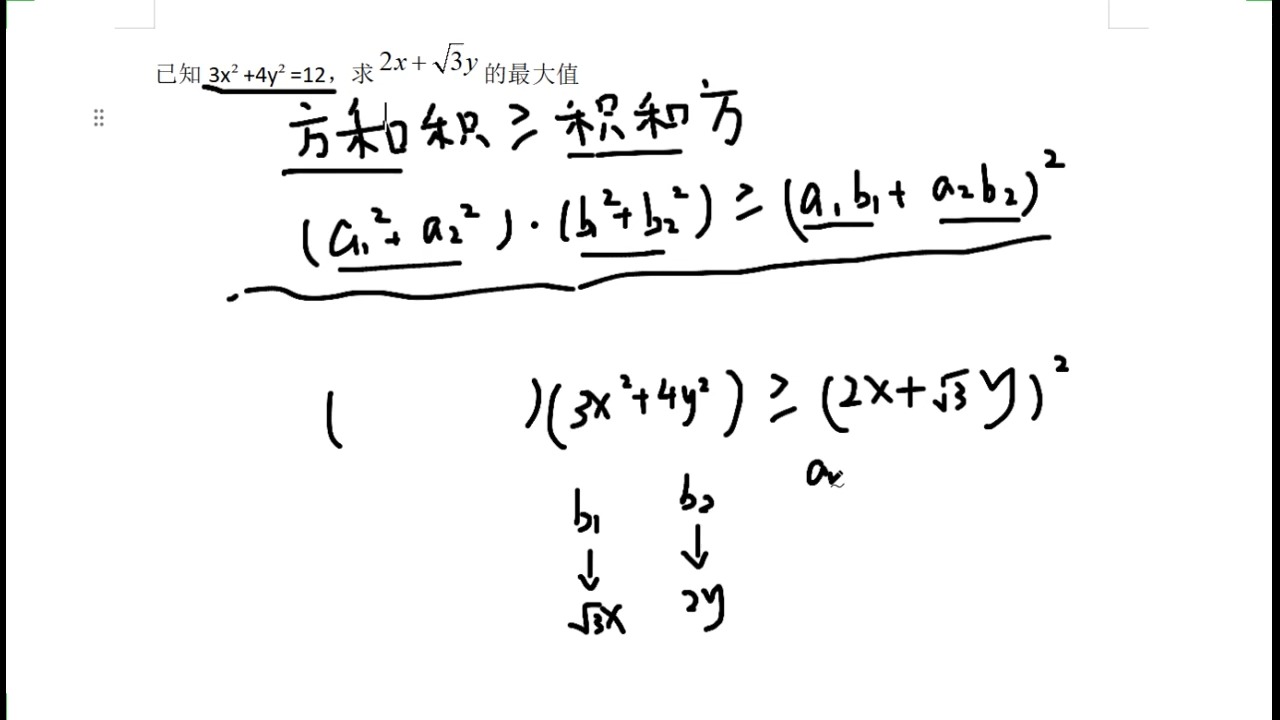 已知 3x² +4y² =12，求 2x + √3y 的最大值
方和积 ≥ 积和方
(a₁² + a₂²) · (b₁² + b₂²) ≥ (a₁b₁ + a₂b₂)²
( )(3x² + 4y²) ≥ (2x + √3 y)²
b₁ b₂ a
↓ ↓
√3x 2y